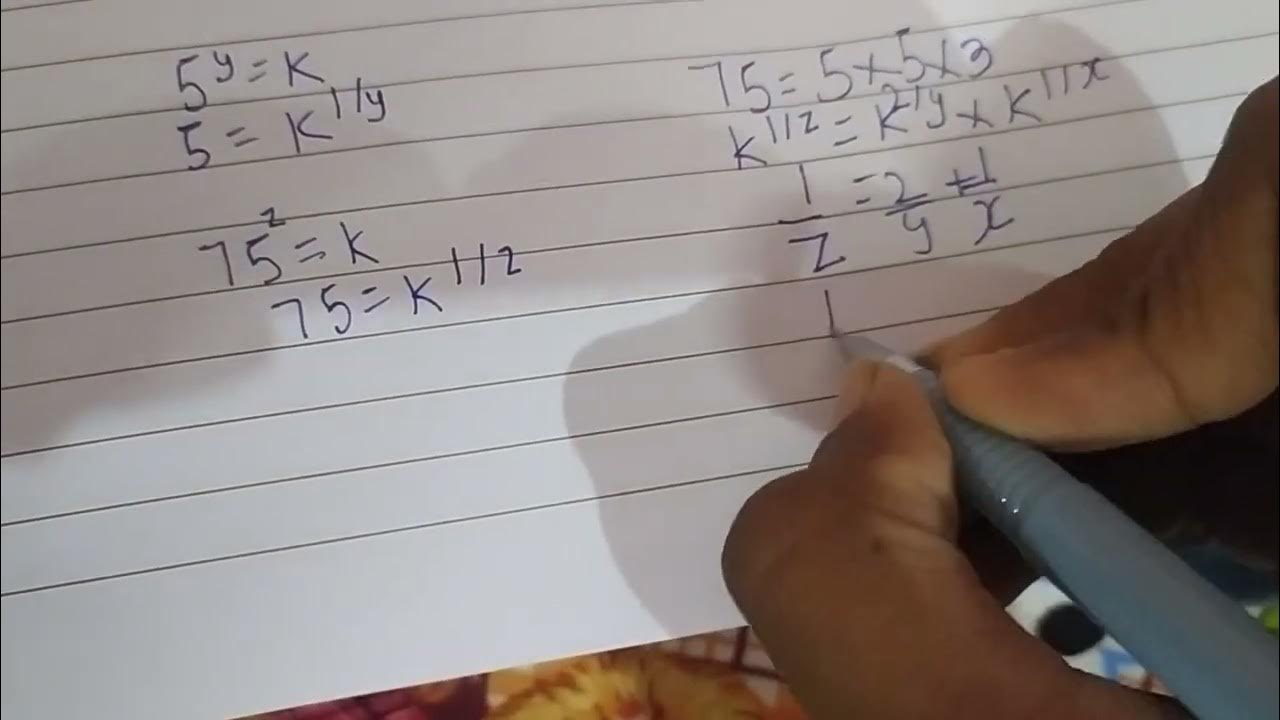 5^y = K
5 = K^1/y
75^z = K
75 = K^1/z
75 = 5×5×3
K^1/z = K^2/y × K^1/x
1/z = 2/y + 1/x
1